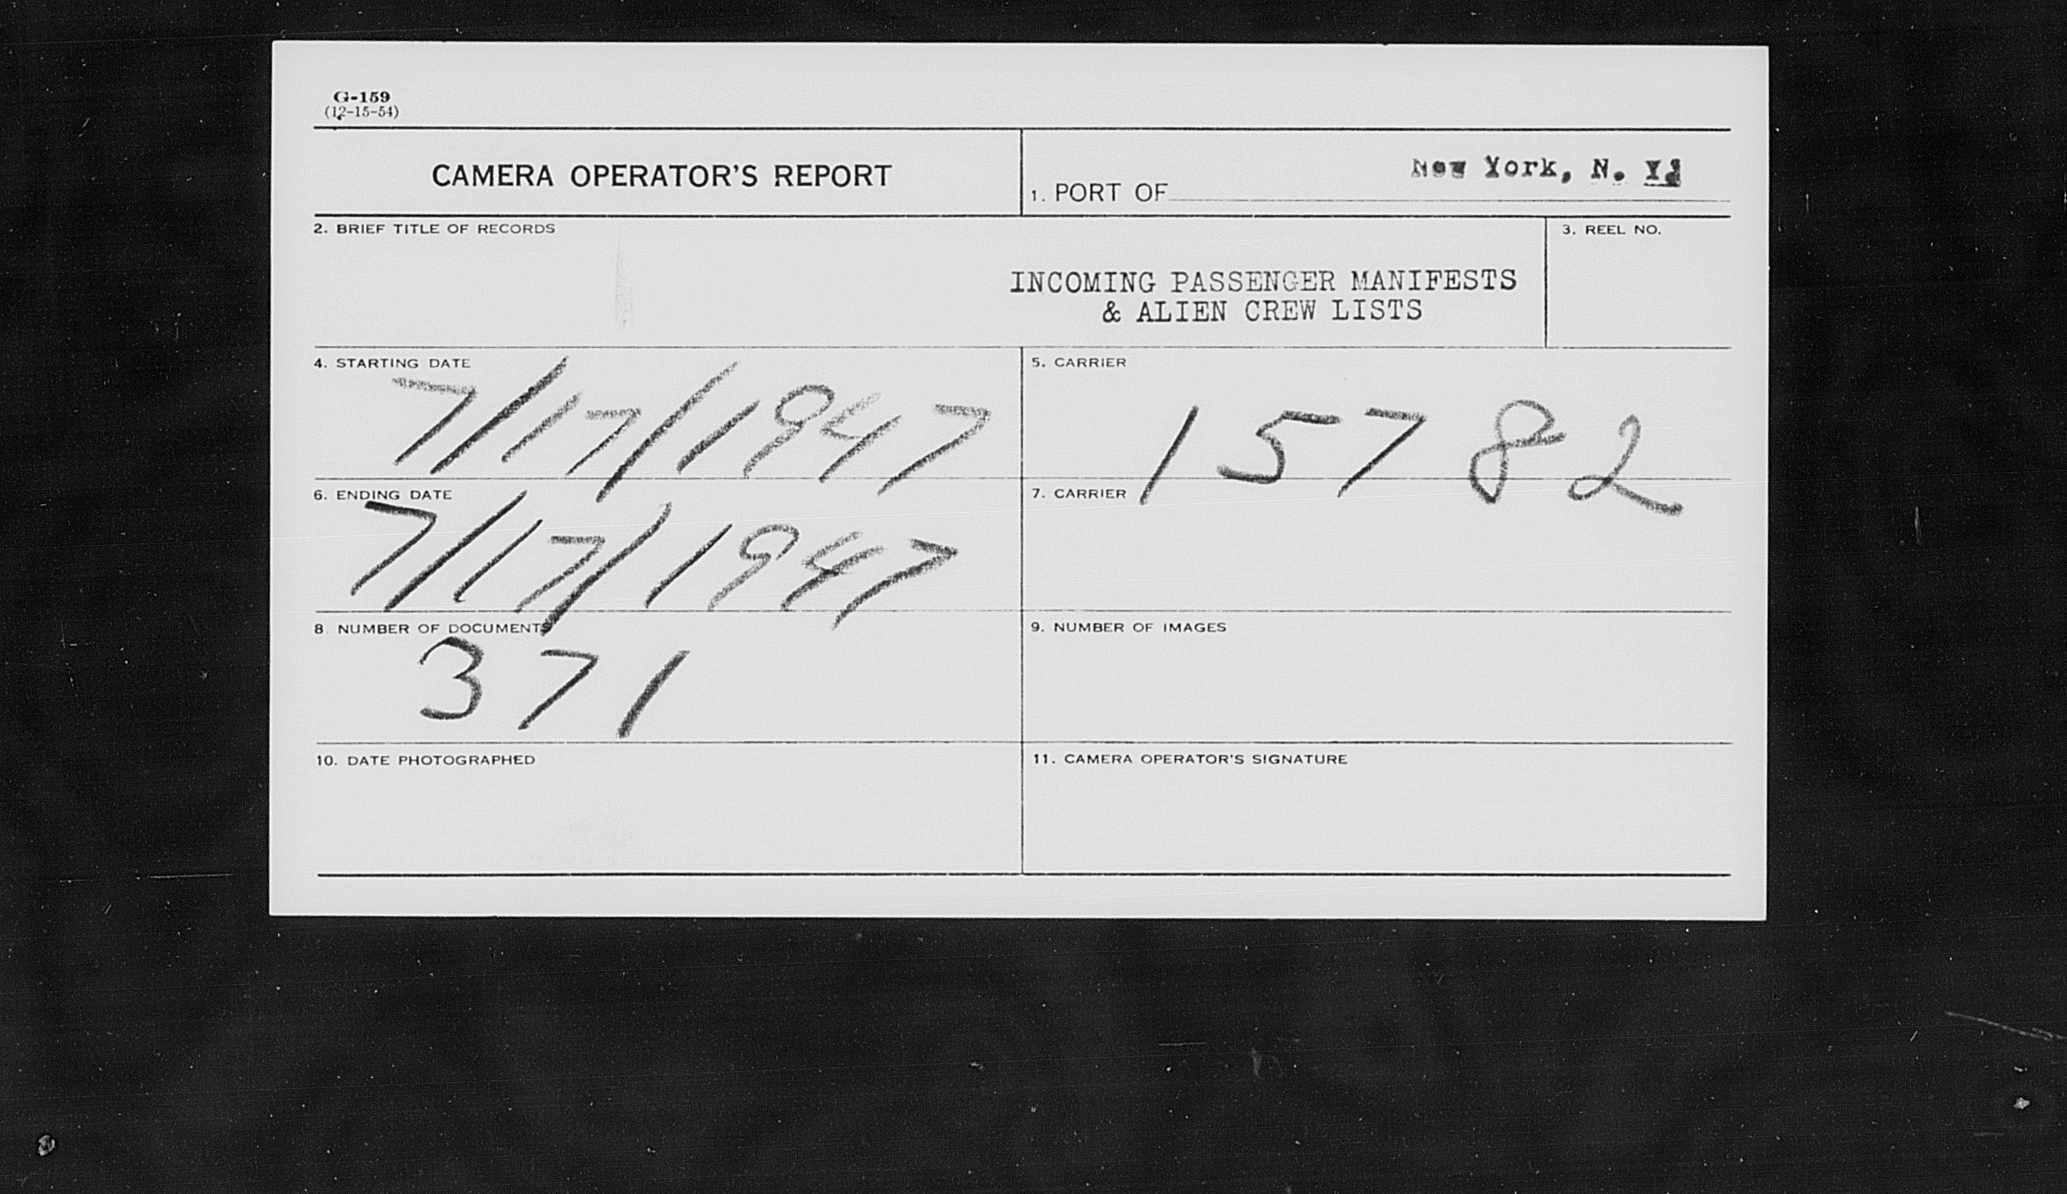 G-159
(12-15-54)
CAMERA OPERATOR'S REPORT
1. PORT OF New York, N. Y.
2. BRIEF TITLE OF RECORDS
3. REEL NO.
INCOMING PASSENGER MANIFESTS
& ALIEN CREW LISTS
4. STARTING DATE
7/17/1947
5. CARRIER
15782
6. ENDING DATE
7/17/1947
7. CARRIER
8. NUMBER OF DOCUMENTS
371
9. NUMBER OF IMAGES
10. DATE PHOTOGRAPHED
11. CAMERA OPERATOR'S SIGNATURE